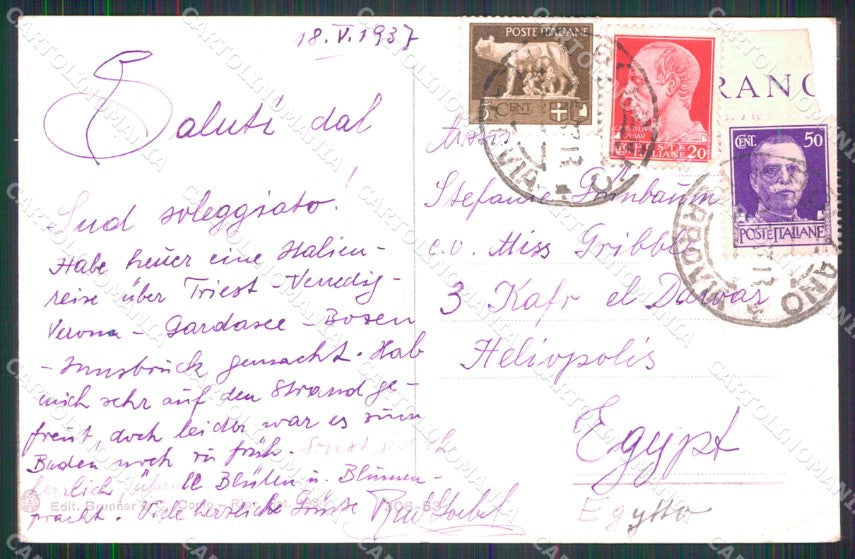 18.V.1937
Saluti dal
Sud soleggiato!
Habe heuer eine Italien-
reise über Triest - Venedig -
Verona - Gardasee - Bozen
- Innsbruck gemacht. Hab
mich sehr auf den Strand ge-
freut, doch leider war es zum
Baden noch zu früh. Sonst
herrlich, Blüten u. Blumen-
pracht. Viele herzliche Grüsse
Edit. Brunner & C., Como
POSTE ITALIANE
5 CENT.
20
RANO
CENT. 50
POSTE ITALIANE
Stefanie
c.o. Miss Gribble
3 Kafr el Dawar
Heliopolis
Egypt
Egytto
CARTOLINOMANIA